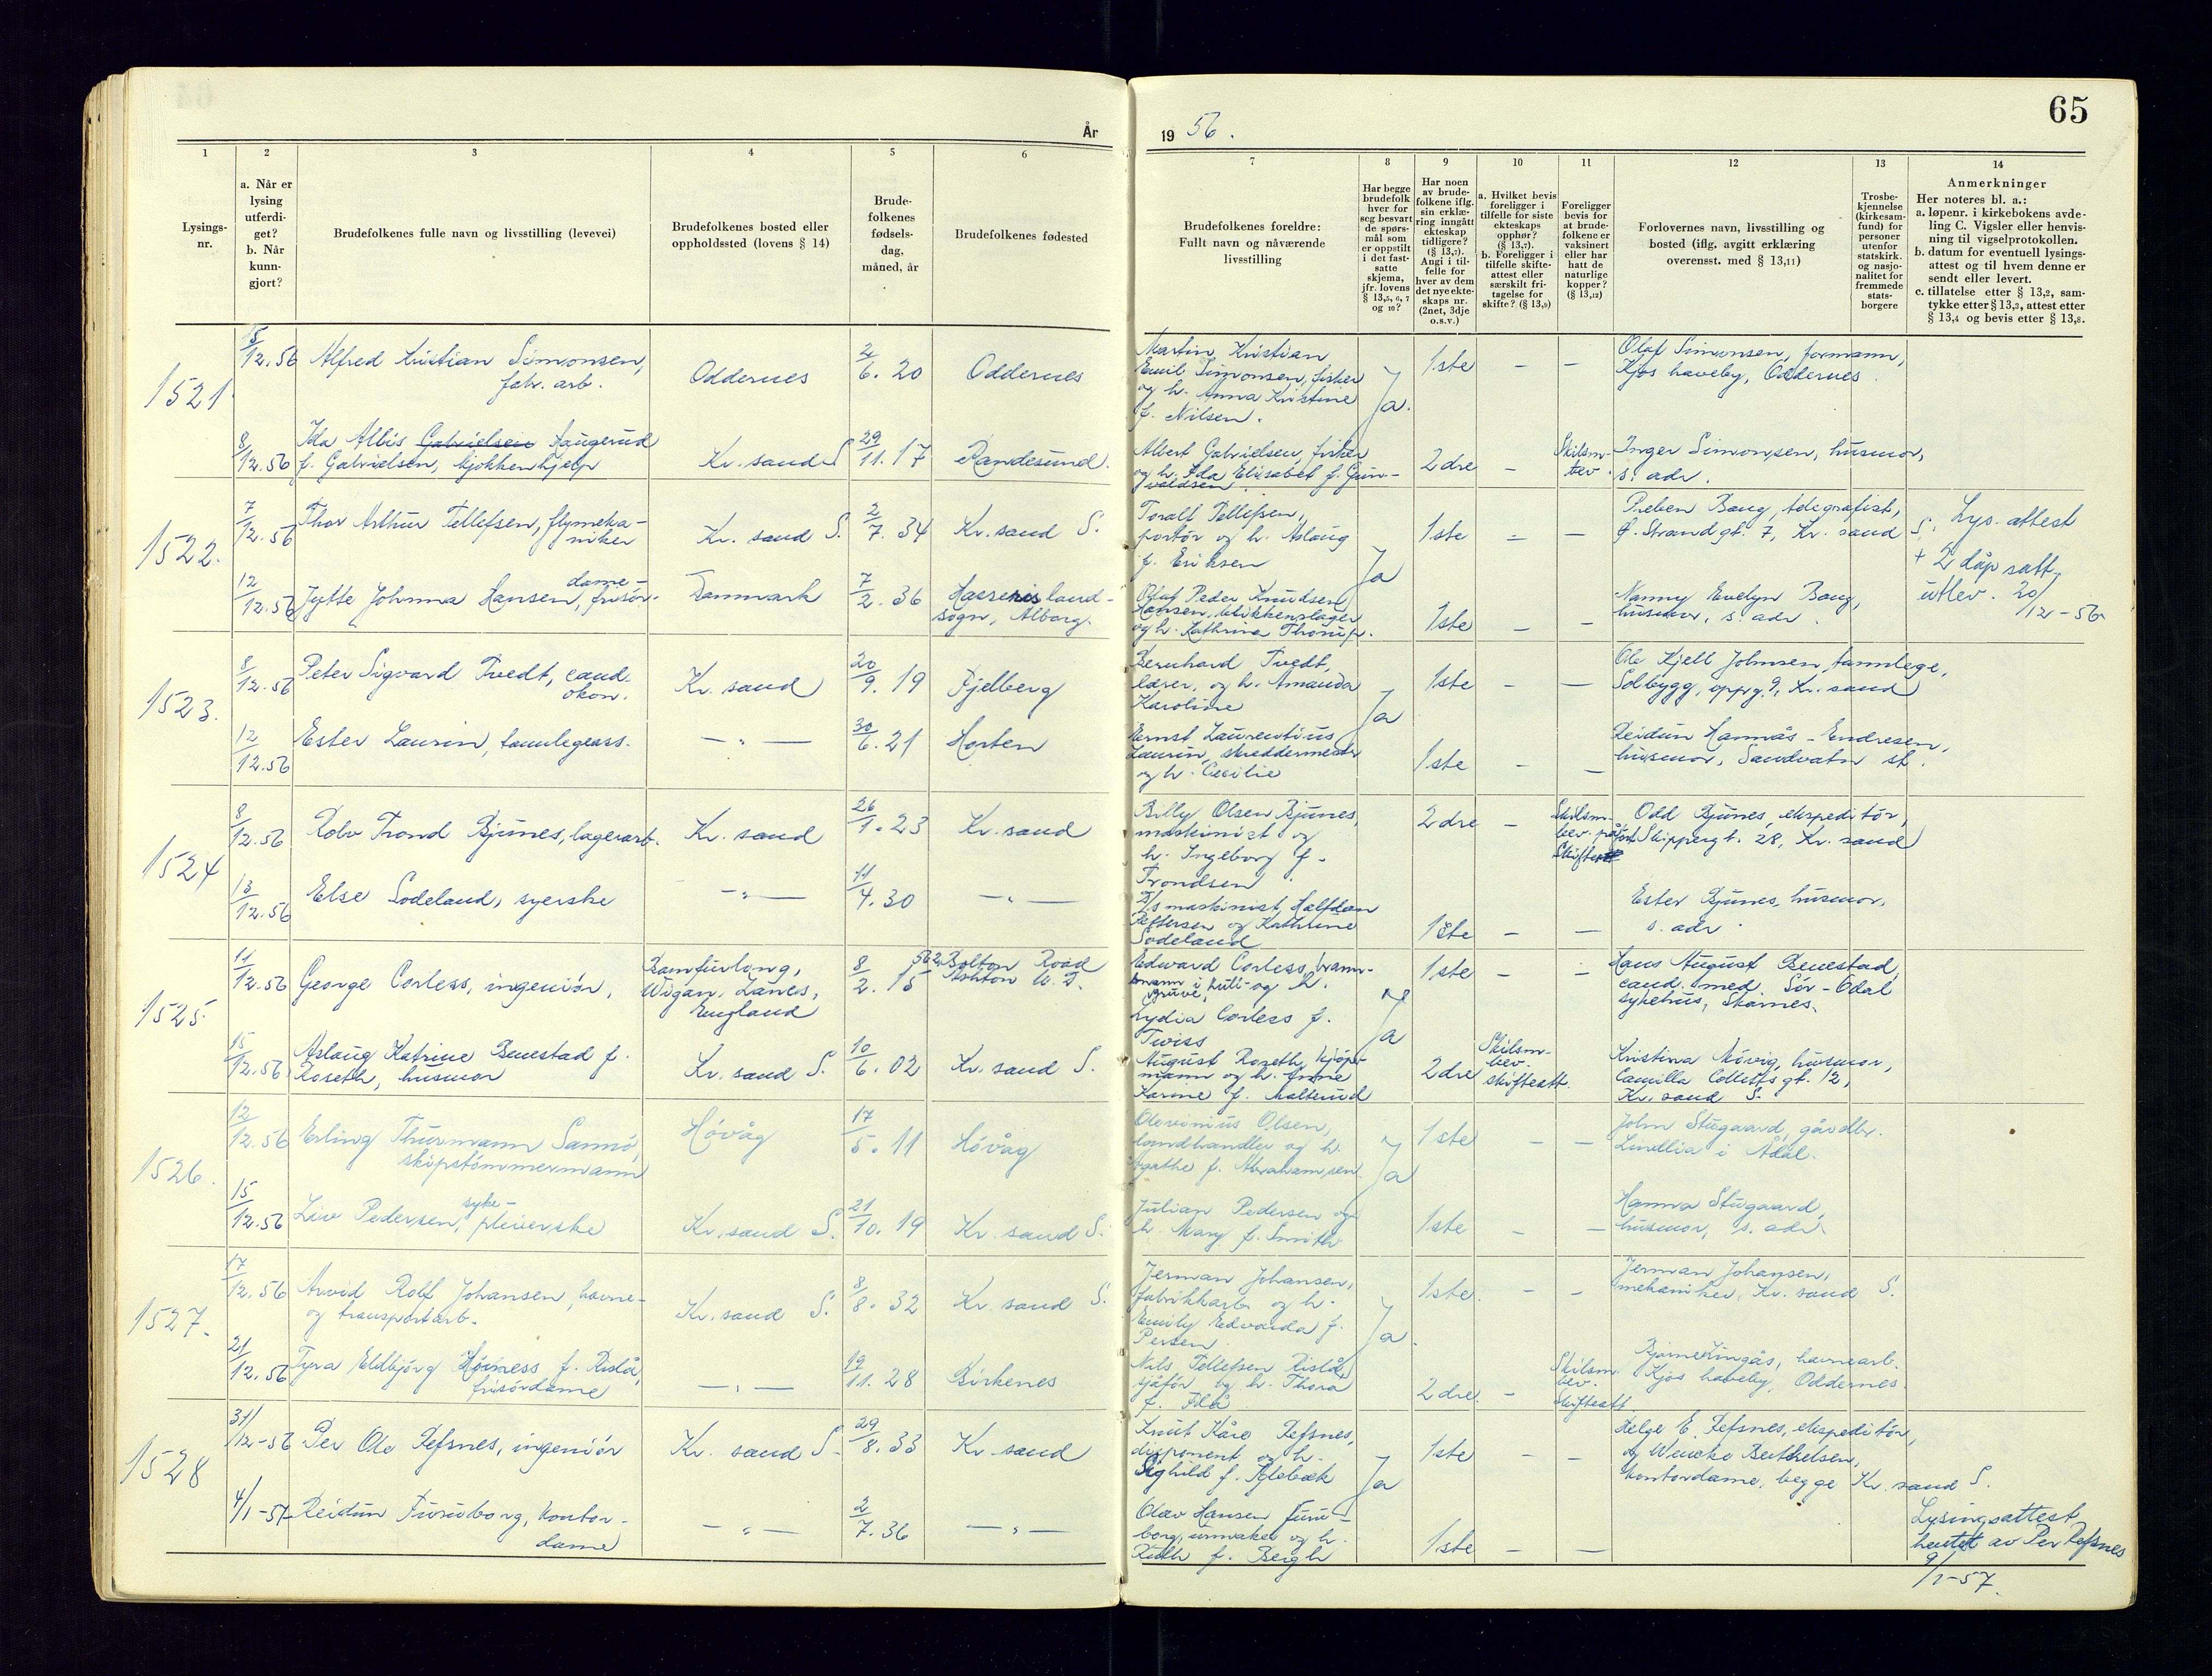 65
År
19 56.
1
2
3
4
5
6
7
8
9
10
11
12
13
14
Lysings-
nr.
a. Når er
lysing
utferdi-
get?
b. Når
kunn-
gjort?
Brudefolkenes fulle navn og livsstilling (levevei)
Brudefolkenes bosted eller
oppholdssted (lovens § 14)
Brude-
folkenes
fødsels-
dag,
måned, år
Brudefolkenes fødested
Brudefolkenes foreldre:
Fullt navn og nåværende
livsstilling
Har begge
brudefolk
hver for
seg besvart
de spørs-
mål som
er oppstilt
i det fast-
satte
skjema,
jfr. lovens
§ 13,5, 6, 7
og 10?
Har noen
av brude-
folkene iflg.
sin erklæ-
ring inngått
ekteskap
tidligere?
(§ 13,7).
Angi i til-
felle for
hver av dem
det nye ekte-
skaps nr.
(2net, 3dje
o.s.v.)
a. Hvilket bevis
foreligger i
tilfelle for siste
ekteskaps
opphør?
(§ 13,7).
b. Foreligger i
tilfelle skifte-
attest eller
særskilt fri-
tagelse for
skifte? (§ 13,9)
Foreligger
bevis for
at brude-
folkene er
vaksinert
eller har
hatt de
naturlige
kopper?
(§ 13,12)
Forlovernes navn, livsstilling og
bosted (iflg. avgitt erklæring
overensst. med § 13,11)
Trosbe-
kjennelse
(kirkesam-
fund) for
personer
utenfor
statskirk.
og nasjo-
nalitet for
fremmede
stats-
borgere
Anmerkninger
Her noteres bl. a.:
a. løpenr. i kirkebokens avde-
ling C. Vigsler eller henvis-
ning til vigselprotokollen.
b. datum for eventuell lysings-
attest og til hvem denne er
sendt eller levert.
c. tillatelse etter § 13,2, sam-
tykke etter § 13,3, attest etter
§ 13,4 og bevis etter § 13,8.
1521
5/12.56
Alfred Kristian Simonsen,
fabr. arb.
Oddernes
2/6. 20
Oddernes
Martin Kristian
Emil Simonsen, fisker
og h. Anna Kristine
f. Nilsen.
Ja.
1ste
–
–
Olaf Simonsen, formann,
Kjos haveby, Oddernes.
8/12.56
Ida Albis Gabrielsen Haugerud
f. Gabrielsen, kjøkkenhjelp
Kr. sand S
29/11. 17
Randesund.
Albert Gabrielsen, fisker
og h. Ida Elisabet f. Gun-
valdsen
2dre
–
Skilsm-
bev.
Inger Simonsen, husmor,
s. adr.
1522.
7/12.56
Thor Arthur Tellefsen, flymeka-
niker
Kr. sand S.
2/7. 34
Kr. sand S.
Toralf Tellefsen,
portør og h. Aslaug
f. Eriksen
Ja
1ste
–
–
Preben Bang, telegrafist,
Ø. Strandgt. 7, Kr. sand S.
Lys. attest
+ 2 dåpsatt.
utlev. 20/12-56
12/12.56
Jytte Johnna Hansen, dame-
frisør.
Danmark
7/2. 36
Hasseris land-
sogn, Ålborg.
Oluf Peder Knudsen
Hansen, blikkenslager
og h. Kathrina Thorup.
1ste
–
–
Nanny Evelyn Bang,
husmor, s. adr.
1523.
8/12.56
Peter Sigvard Tvedt, cand.
økon.
Kr. sand
20/9. 19
Fjelberg
Bernhard Tvedt,
lærer, og h. Amanda
Karoline
Ja
1ste
–
–
Ole Kjell Johnsen, tannlege,
Solbygg, oppg. 9, Kr. sand
12/12.56
Ester Laurin, tannlegeass.
–"–
30/6. 21
Horten
Ernst Laurentius
Laurin, skreddermester
og h. Cecilie
1ste
–
–
Reidun Hannås-Endresen,
husmor, Sandvatn st.
1524
8/12.56
Rolv Trond Bjunes, lagerarb.
Kr. sand
26/1. 23
Kr. sand
Billy Olsen Bjunes,
maskinist og
h. Ingeborg f.
Trondsen
2dre
–
Skilsm-
bev.
Odd Bjunes, ekspeditør,
Skippergt. 28, Kr. sand
13/12.56
Else Sodeland, syerske
–"–
11/4. 30
–"–
maskinist Halfdan
Pettersen og Kathrine
Sodeland
1ste
–
–
Ester Bjunes, husmor,
s. adr.
1525.
11/12.56
George Corless, ingeniør,
Bamfurlong,
Wigan, Lancs,
England
8/2. 15
562 Bolton Road
Ashton
Edward Corless,
mann i kull-
gruve, og h.
Lydia Corless f.
Twiss
Ja
1ste
–
–
Hans August Benestad,
cand. med. Sør-Odal
sykehus, Skarnes.
15/12.56
Aslaug Katrine Benestad f.
Roseth, husmor
Kr. sand S.
10/6. 02
Kr. sand S.
August Roseth, kjøp-
mann og h. Anne
Karine f. Malterud
2dre
Skilsm-
bev.
skifteatt.
Kristina Møvig, husmor,
Camilla Colletts gt. 12,
Kr. sand S.
1526.
12/12.56
Erling Thurmann Sannø,
skipstømmermann
Høvåg
17/5. 11
Høvåg
Olevinius Olsen,
landhandler og h.
Agathe f. Abrahamsen.
Ja
1ste
–
–
John Stugaard, gårdbr.
Lindlia i Ådal.
15/12.56
Liv Pedersen, syke-
pleierske
Kr. sand S.
21/10. 19
Kr. sand S.
Julian Pedersen og
h. Mary f. Smith
1ste
–
–
Hanna Stugaard,
husmor, s. adr.
1527.
17/12.56
Arvid Rolf Johansen, havne-
og transportarb.
Kr. sand S.
8/8. 32
Kr. sand S.
Jerman Johansen,
fabrikkarb. og h.
Emily Edvarda f.
Persen.
Ja.
1ste
–
–
Jerman Johansen,
mekaniker, Kr. sand S.
21/12.56
Tyra Eldbjørg Høiness f. Rislå,
frisørdame
–"–
19/11. 28
Birkenes
Nils Tellefsen Rislå,
sjåfør og h. Thora
f. Flå
2dre
–
Skilsm.
bev.
Skifteatt.
Bjarne Lingås, havnearb.
Kjos haveby, Oddernes.
1528
31/12-56
Per Ole Refsnes, ingeniør
Kr. sand S.
29/8. 33
Kr. sand
Knut Kåre Refsnes,
disponent og h.
Sighild f. Kjlebæk
Ja
1ste
–
–
Helge E. Refsnes, ekspeditør,
og Wencke Berthelsen,
kontordame, begge Kr. sand S.
4/1-57
Reidun Furuborg, kontor-
dame
–"–
2/7. 36
–"–
Olav Hansen Furu-
borg, urmaker og h.
Ruth f. Bergh
1ste
–
–
Lysingsattest
hentet av Per Refsnes
9/1-57.